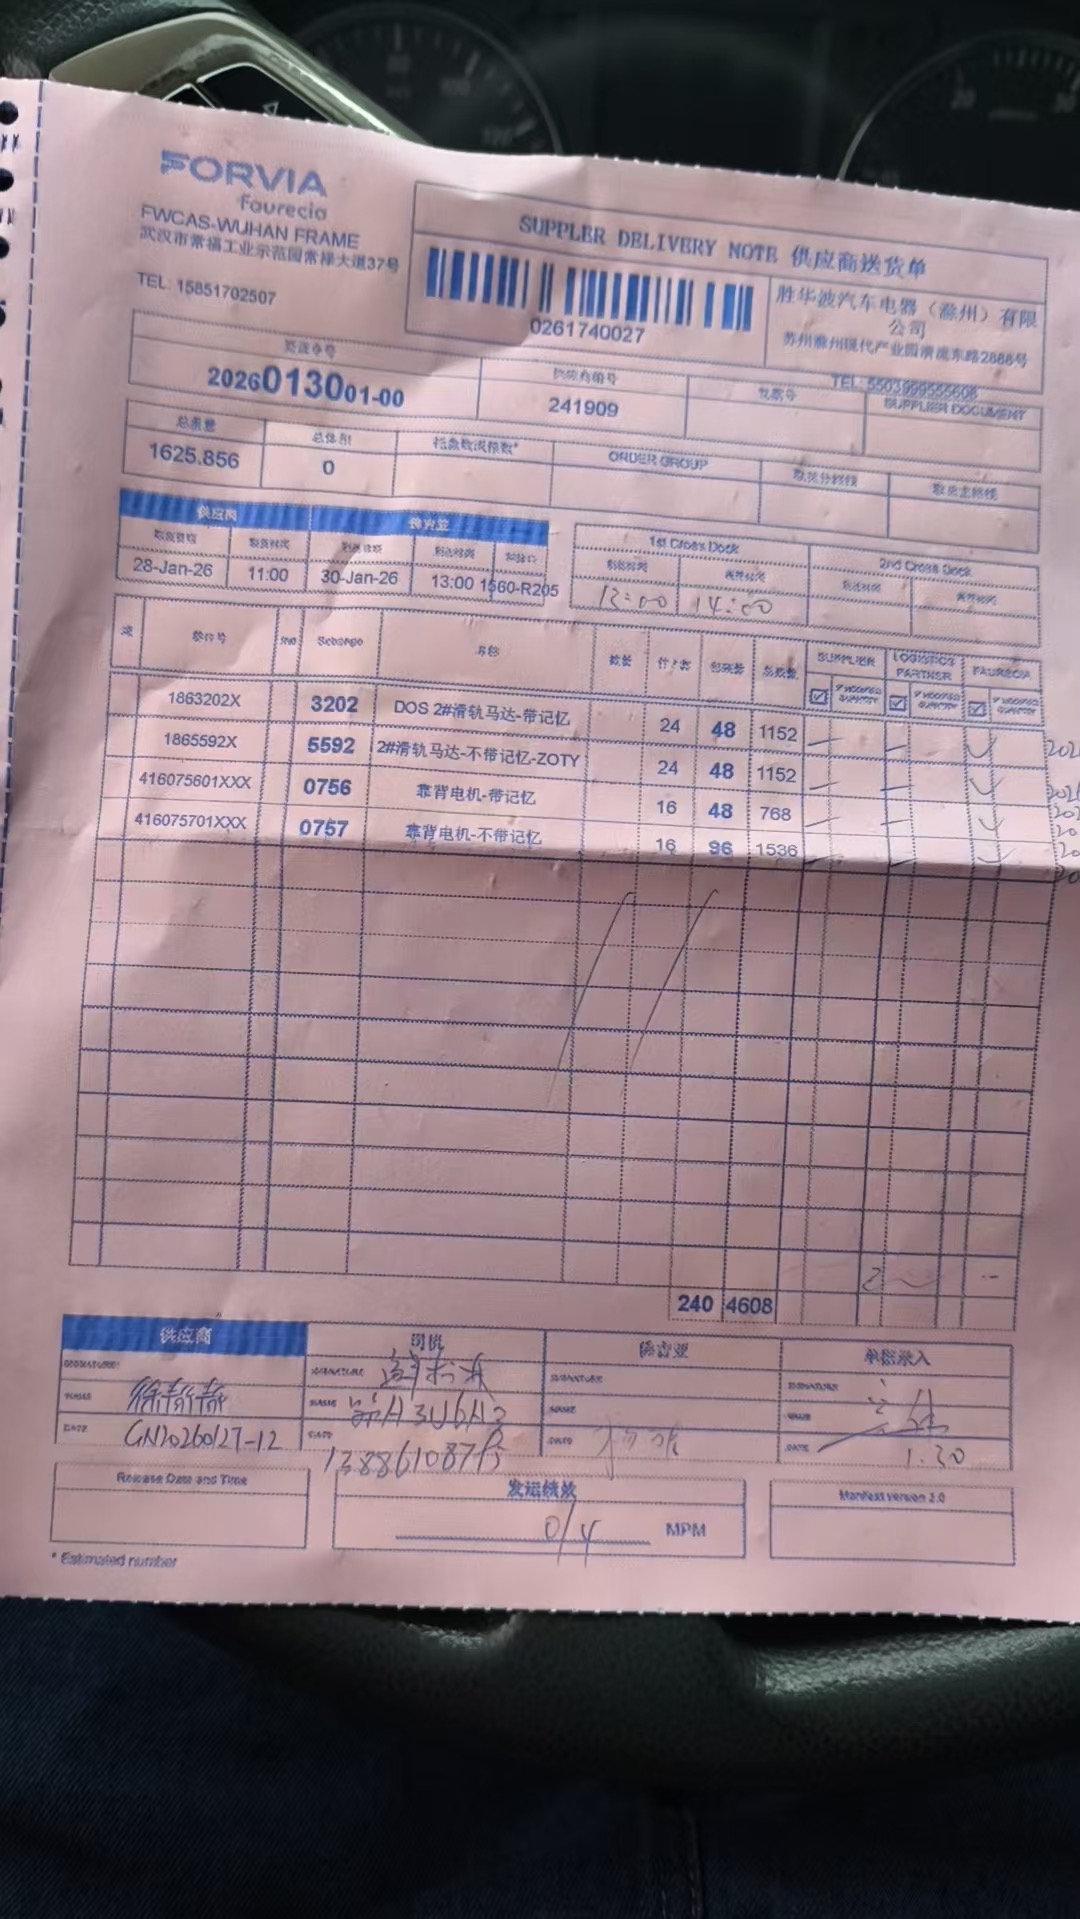 FORVIA
faurecia
FWCAS-WUHAN FRAME
武汉市常福工业示范园常禄大道37号
TEL: 15851702507
SUPPLER DELIVERY NOTE 供应商送货单
0261740027
胜华波汽车电器（滁州）有限
公司
苏州滁州现代产业园清流东路2888号
TEL: 5503999555608
发运令号
2026013001-00
供应商编号
241909
发票号
SUPPLIER DOCUMENT
总重量
1625.856
总体积
0
托盘数或箱数*
ORDER GROUP
取货分路线
取货主路线
供应商
佛吉亚
取货日期
取货时间
到达日期
到达时间
28-Jan-26
11:00
30-Jan-26
13:00
1560-R205
1st Cross Dock
2nd Cross Dock
到达时间
离开时间
到达时间
离开时间
13:00
14:00
零件号
Sebango
名称
数量
件/套
包装数
总数量
SUPPLIER
LOGISTICS PARTNER
FAURECIA
1863202X 3202 DOS 2#滑轨马达-带记忆 24 48 1152
1865592X 5592 2#滑轨马达-不带记忆-ZOTY 24 48 1152
416075601XXX 0756 靠背电机-带记忆 16 48 768
416075701XXX 0757 靠背电机-不带记忆 16 96 1536
240 4608
供应商
司机
佛吉亚
单据录入
SIGNATURE:
SIGNATURE
SIGNATURE
SIGNATURE
NAME
徐静静
NAME
NAME
NAME
DATE
GN20260127-12
DATE
DATE
DATE
1.30
Release Date and Time
发运绩效
0/4 MPM
Manifest version 2.0
* Estimated number